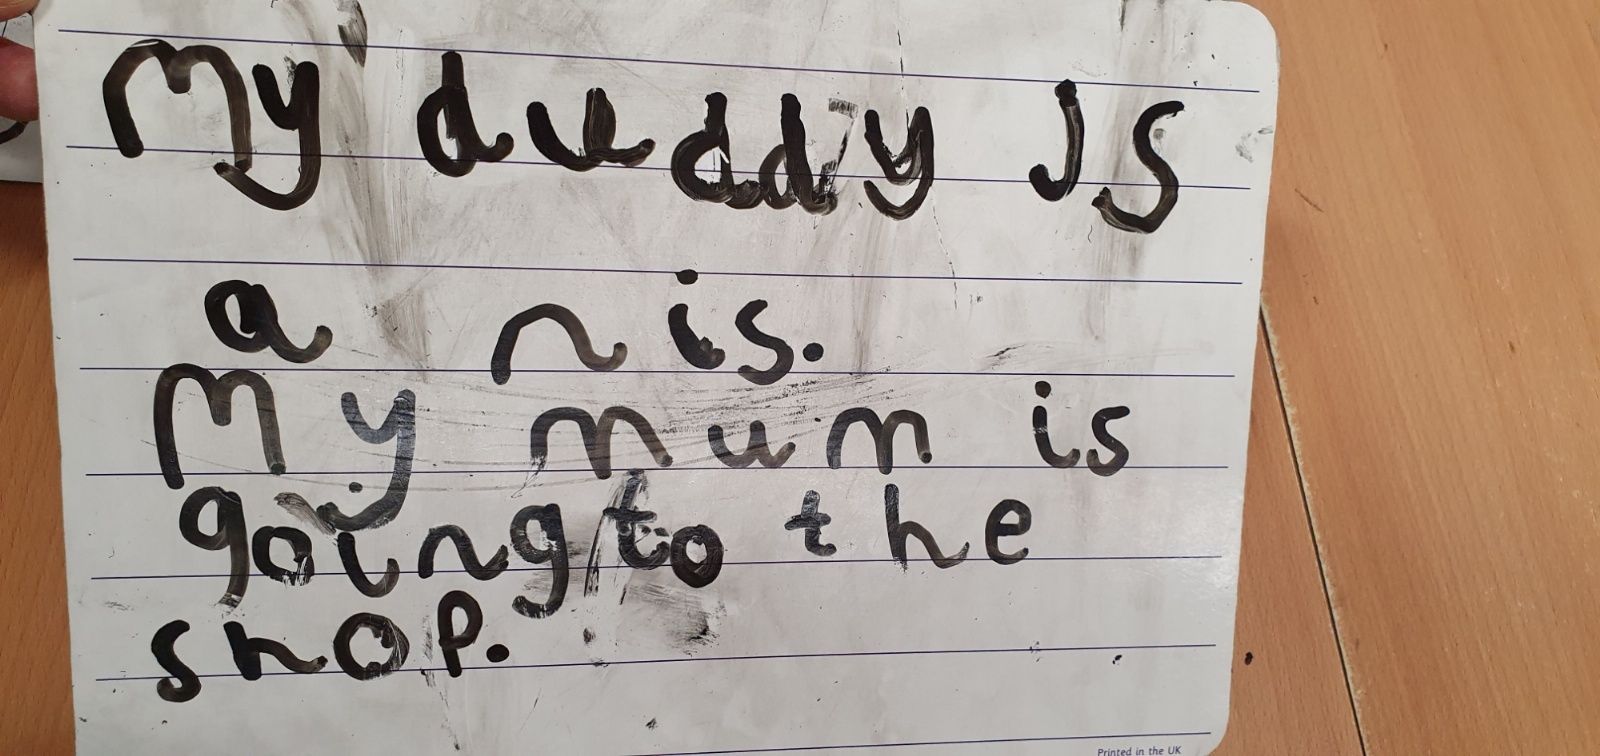 My duddy is
a nis.
My mum is
going to the
shop.
Printed in the UK